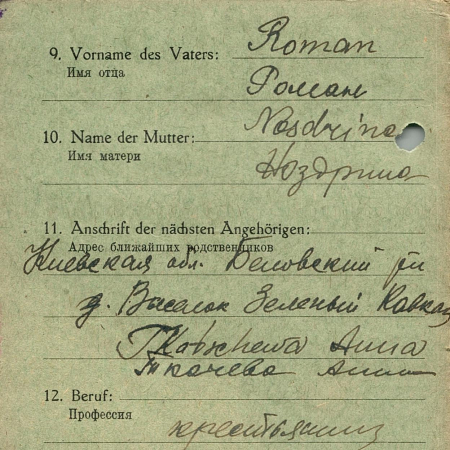 9. Vorname des Vaters: Roman
Имя отца Роман
10. Name der Mutter: Nosdrina
Имя матери Ноздрина
11. Anschrift der nächsten Angehörigen:
Адрес ближайших родственников
Киевская обл. Беловский рн
д. Выселок Зеленый Кавказ
Tkatschewa Anna
Ткачева Анна
12. Beruf:
Профессия
крестьянин